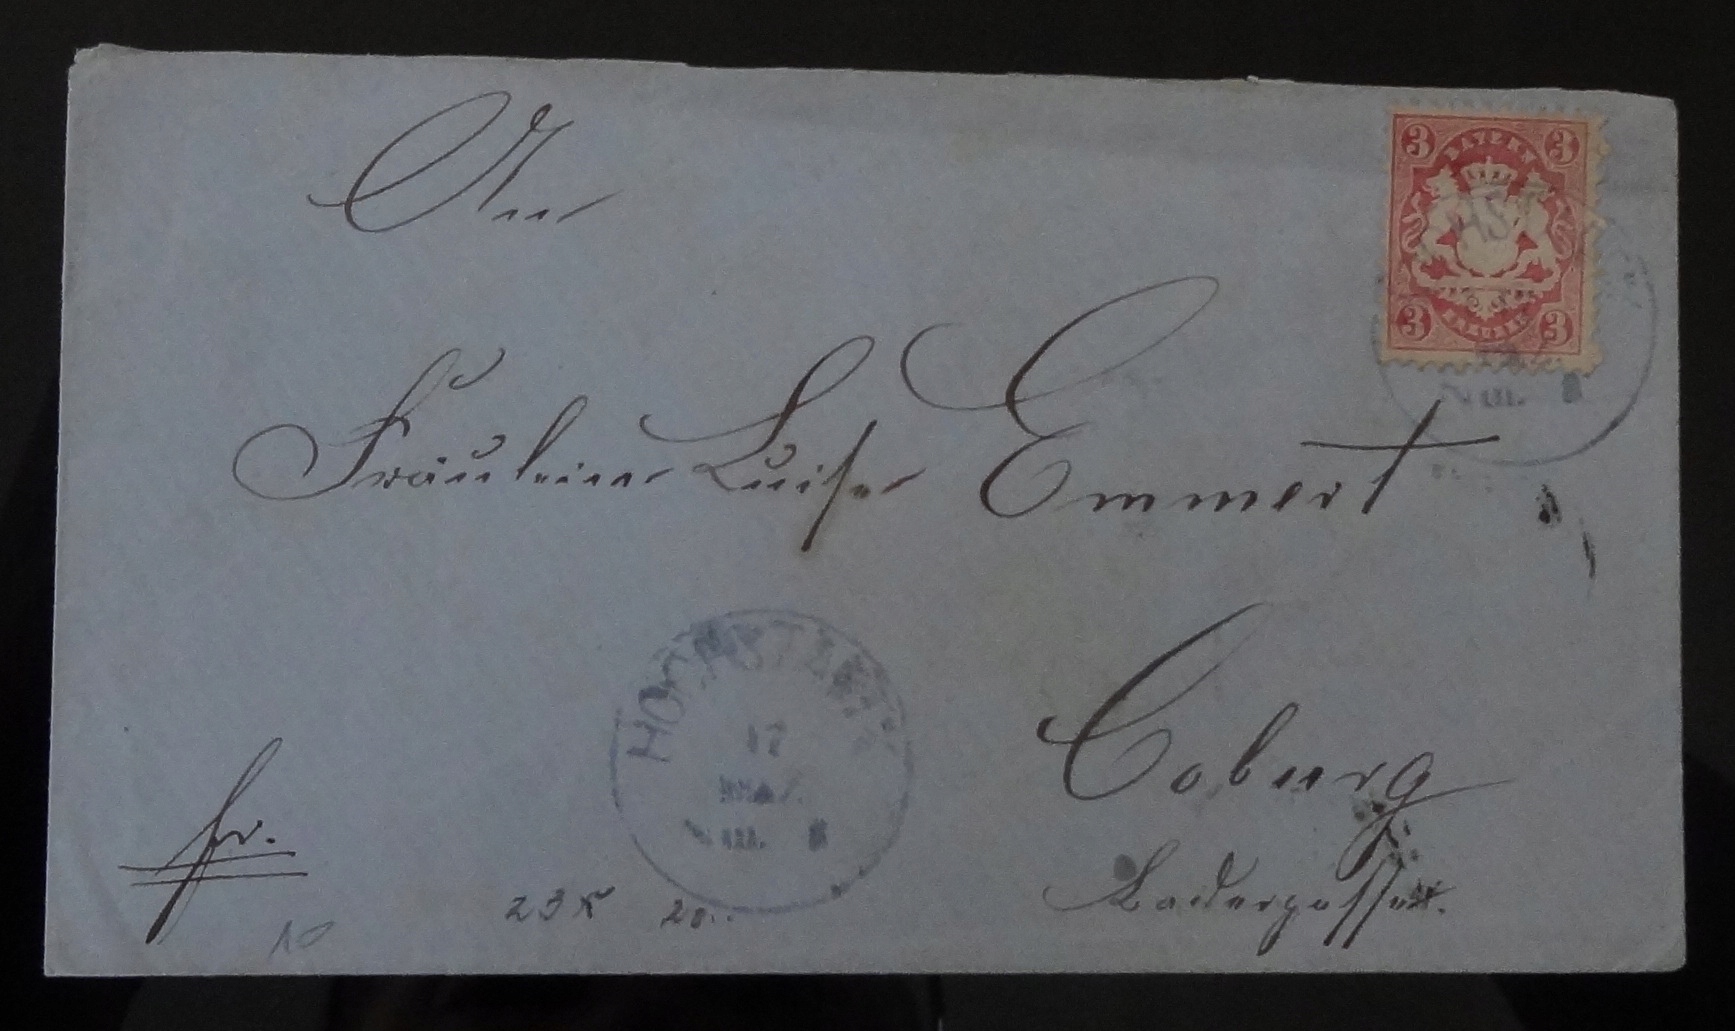 An
3 BAYERN 3
3 KREUZER 3
Fräulein Luise Emmert
HOCHSTADT
17
MAI
Coburg
fr.
Badergasse.
23 K 20
10